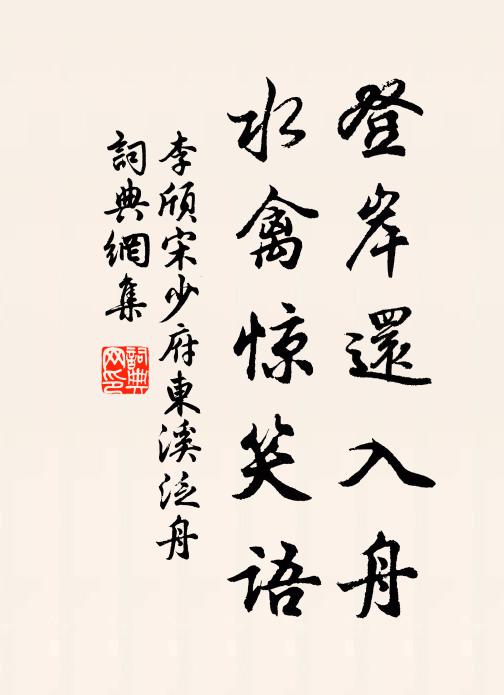 登岸還入舟
水禽惊笑語
李頎宋少府東溪泛舟
詞典網集
詞典网印